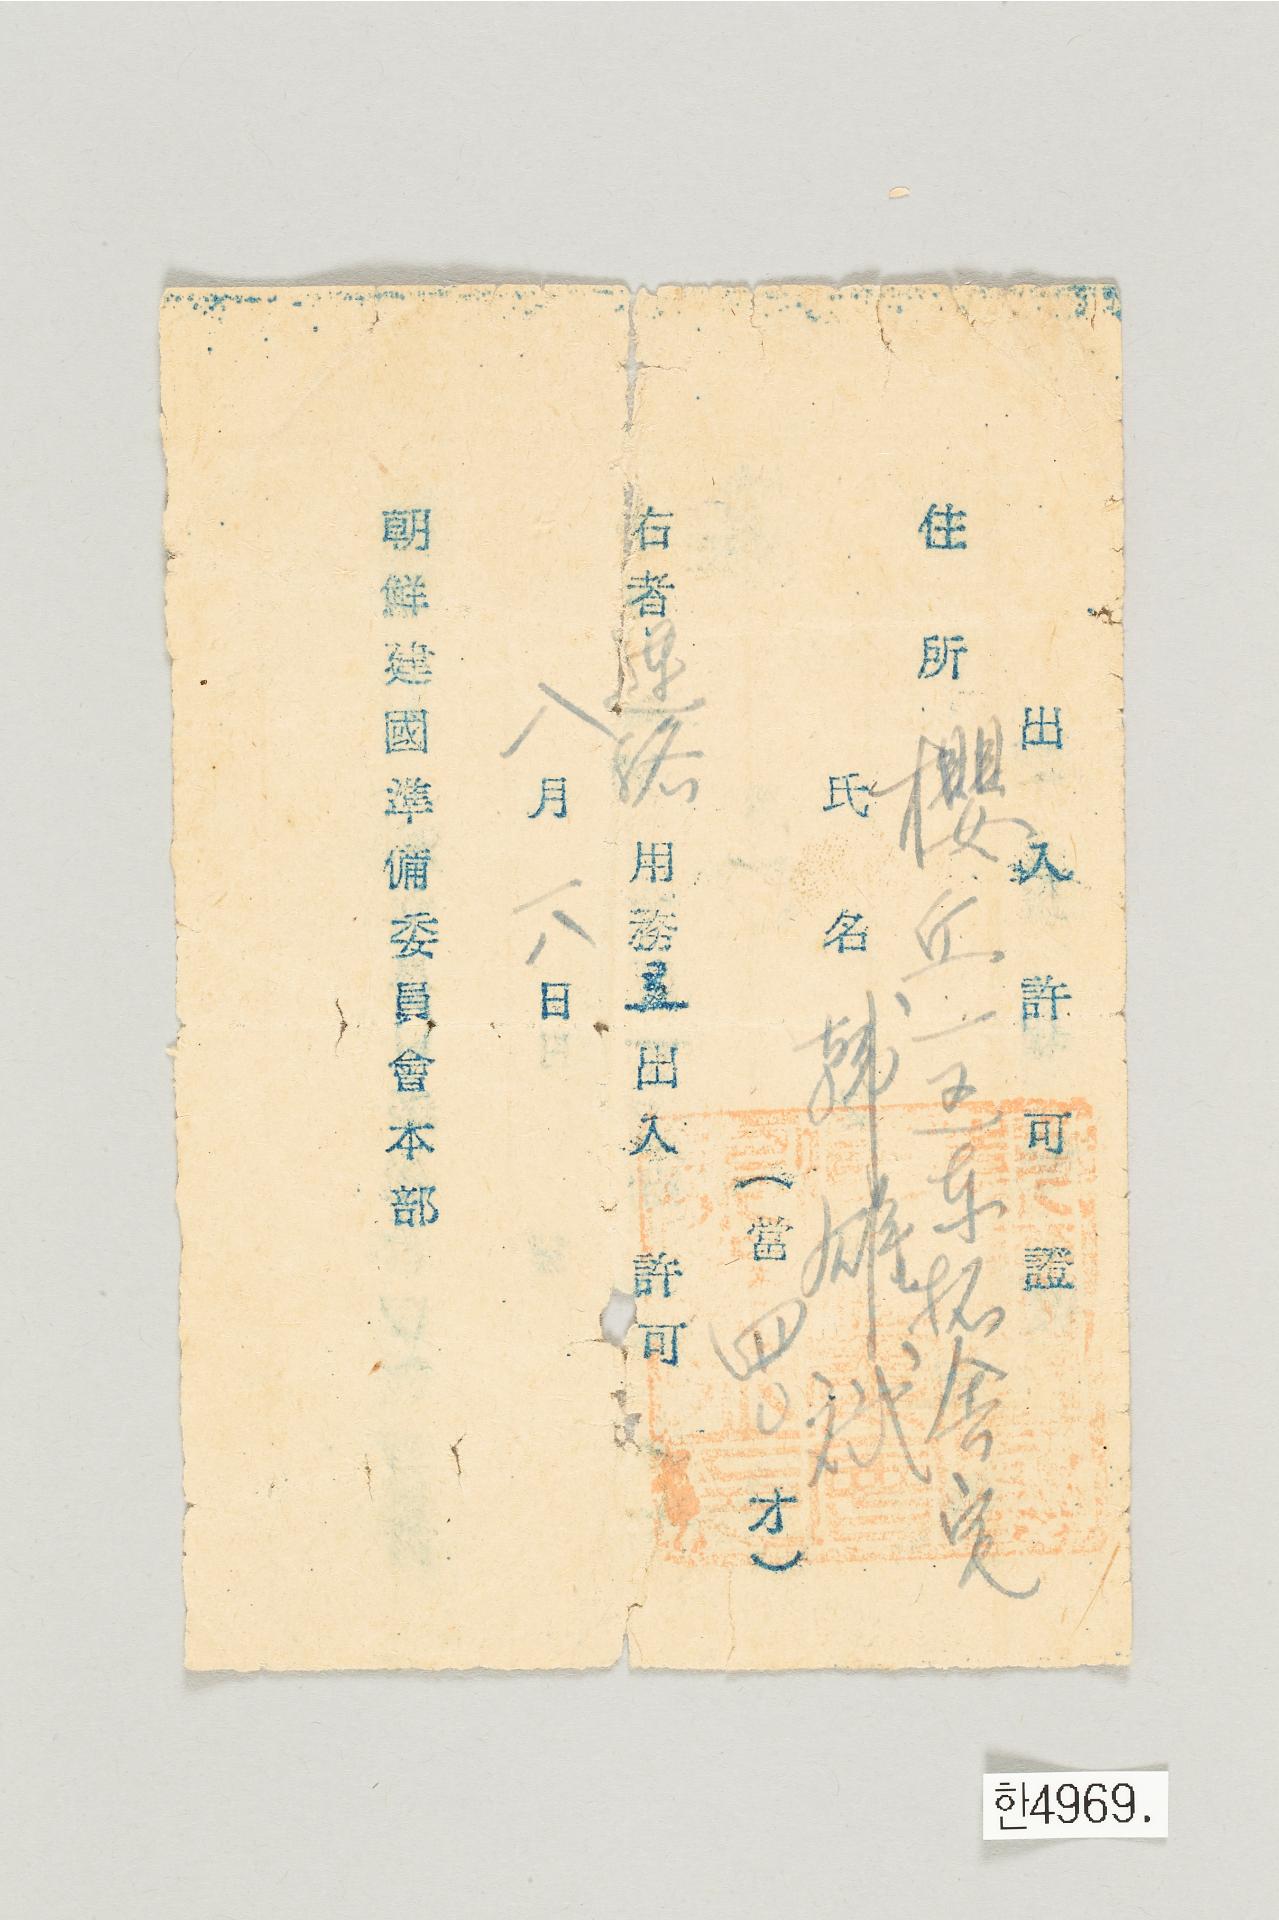 出入許可證
住所 櫻丘町 東拓舍宅
氏名 韓雄斌
(當 四〇 才)
右者連絡用務로出入許可
八月一八日
朝鮮建國準備委員會本部
한4969.